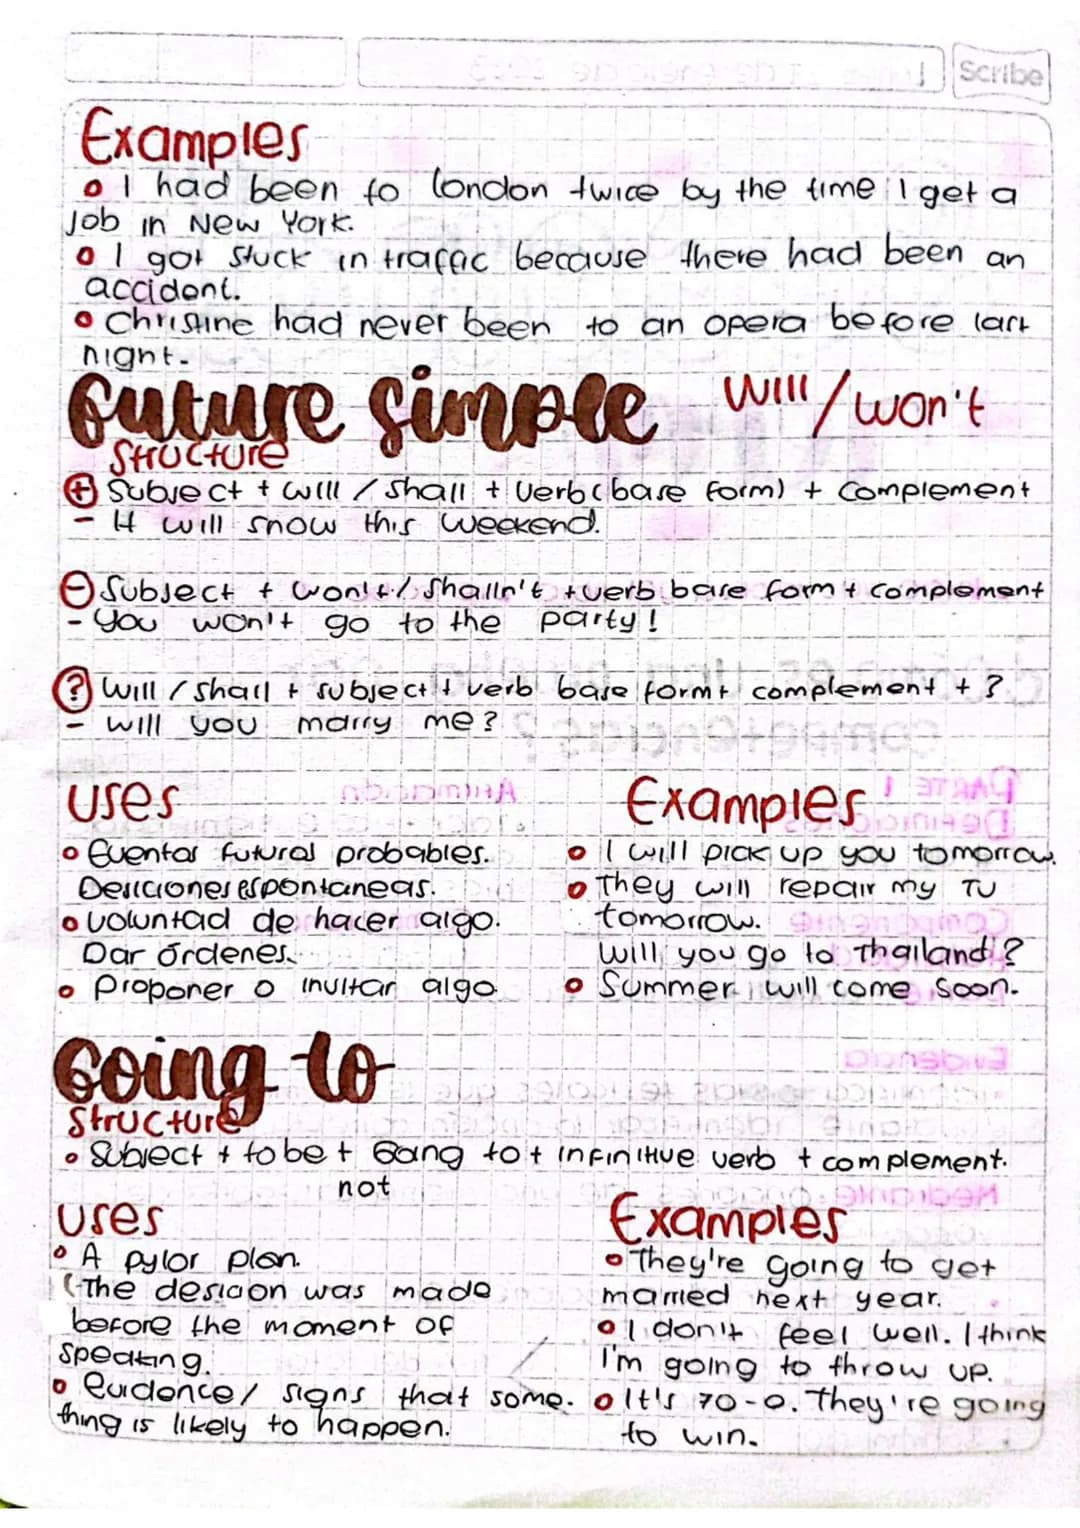 Scribe
Examples
• I had been to london twice by the time I get a
Job in New York.
• I got stuck in traffic because there had been an
accident.
• Christine had never been to an opera before last
night.
future simple will/won't
Structure
+ Subject + will / shall + Verb (base form) + complement
- It will snow this weekend.
- Subject + won't / Shalln't + verb base form + complement
- You won't go to the party!
? Will / shall + subject + verb base form + complement + ?
- will you marry me?
uses Examples
• Eventos futuros probables. • I will pick up you tomorrow.
Desiciones espontaneas. • They will repair my TV
• voluntad de hacer algo. tomorrow.
Dar órdenes. Will you go to Thailand?
• Proponer o invitar algo • Summer will come soon.
Going to
Structure
• Subject + to be + Going to + infinitive verb + complement.
not
uses Examples
• A pylor plan. • They're going to get
(The desicion was made married next year.
before the moment of • I don't feel well. I think
speaking. I'm going to throw up.
• Evidence / signs that some. • It's 70-0. They're going
thing is likely to happen. to win.